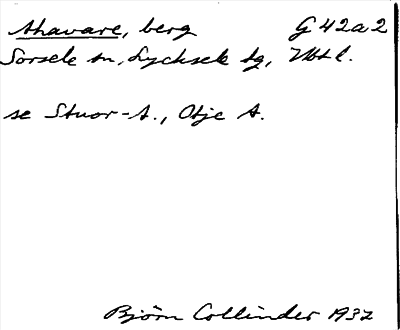 Ahavare, berg G 42 a 2
Sorsele sn, Lycksele tg, Vbtl.
se Stuor-A., Otje A.
Björn Collinder 1932